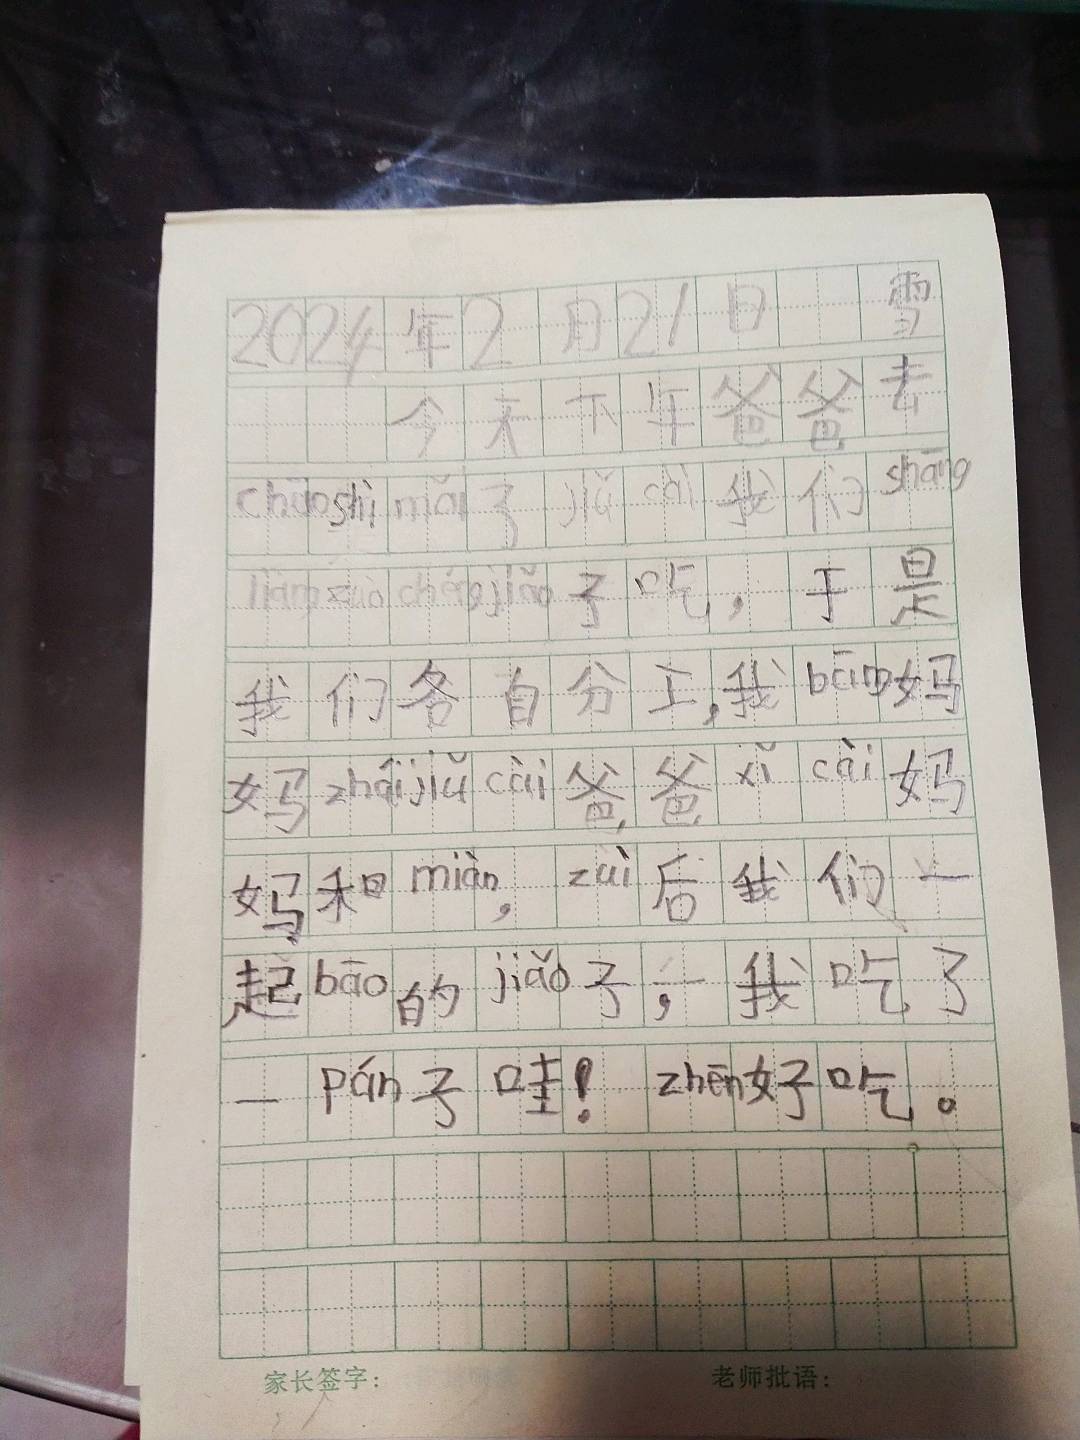 2024年2月21日 雪
今天下午爸爸去
chāoshì mǎi了jiǔ cài我们shāng
liàng zuò chéng jiǎo子吃，于是
我们各自分工，我bāng妈
妈zhái jiǔ cài爸爸xǐ cài妈
妈和miàn，zuì后我们一
起bāo的jiǎo子，我吃了
一pán子哇！zhēn好吃。
家长签字： 老师批语：